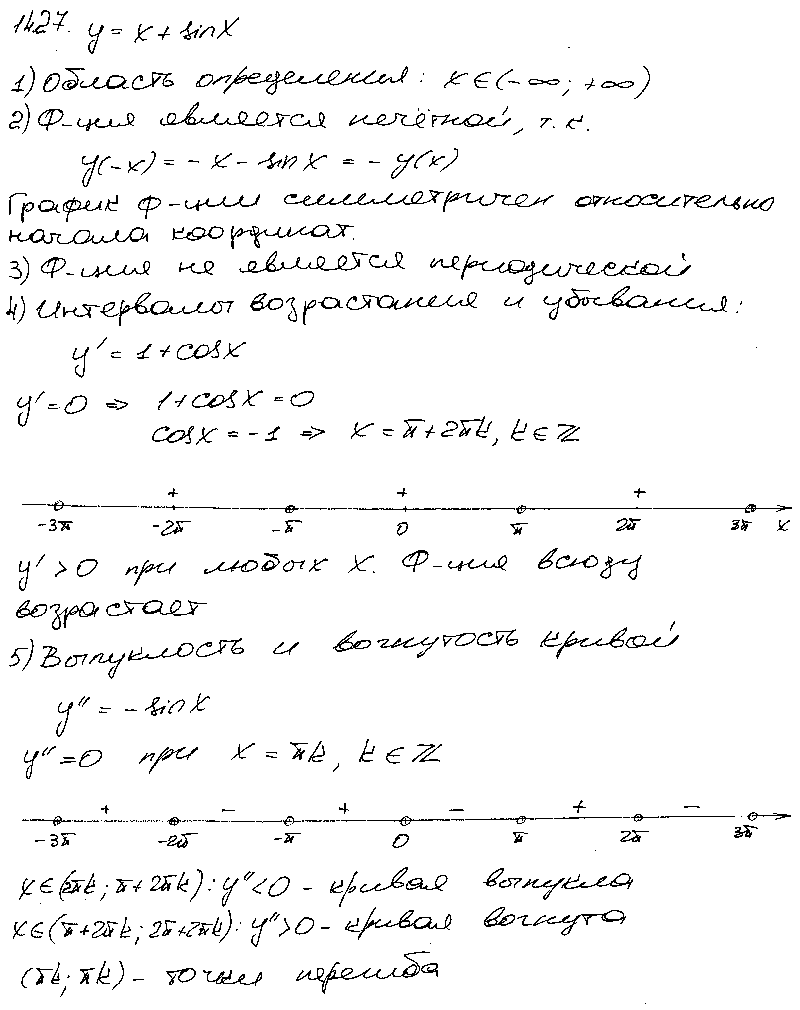 1427. y = x + sinx
1) Область определения: x∈(-∞; +∞)
2) Ф-ция является нечётной, т.к.
y(-x) = -x - sinx = -y(x)
График ф-ции симметричен относительно
начала координат.
3) Ф-ция не является периодической
4) Интервалы возрастания и убывания:
y' = 1 + cosx
y' = 0 ⇒ 1 + cosx = 0
cosx = -1 ⇒ x = π + 2πk, k∈ℤ
+ + +
-3π -2π -π 0 π 2π 3π x
y' > 0 при любых x. Ф-ция всюду
возрастает
5) Выпуклость и вогнутость кривой
y'' = -sinx
y'' = 0 при x = πk, k∈ℤ
+ - + - + -
-3π -2π -π 0 π 2π 3π
x∈(2πk; π+2πk): y''<0 - кривая выпукла
x∈(π+2πk; 2π+2πk): y''>0 - кривая вогнута
(πk; πk) - точки перегиба